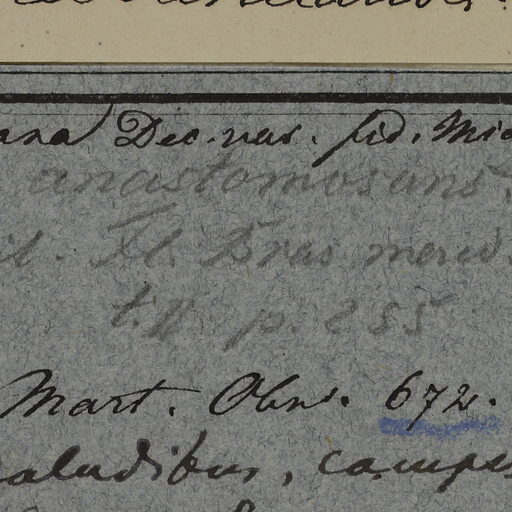 Dec. var. fid. Mic
anastomosans.
Fl. Bras. merid.
t. II p. 255
Mart. Obs. 672.
paludibus, campis